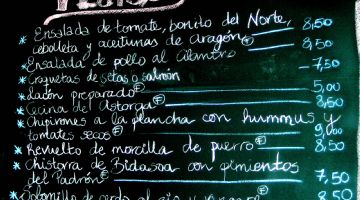 * Ensalada de tomate, bonito del Norte,
cebolleta y aceitunas de Aragón 8,50
* Ensalada de pollo al cilantro 8,50
* Croquetas de setas o salmón 7,50
* Lacón preparado F 5,00
* Cecina de Astorga F 8,50
* Chipirones a la plancha con hummus y
tomates secos F 9,00
* Revuelto de morcilla de puerro F 8,50
* Chistorra de Bidasoa con pimientos
del Padrón F 7,50
* Solomillo de cerdo al 8,50